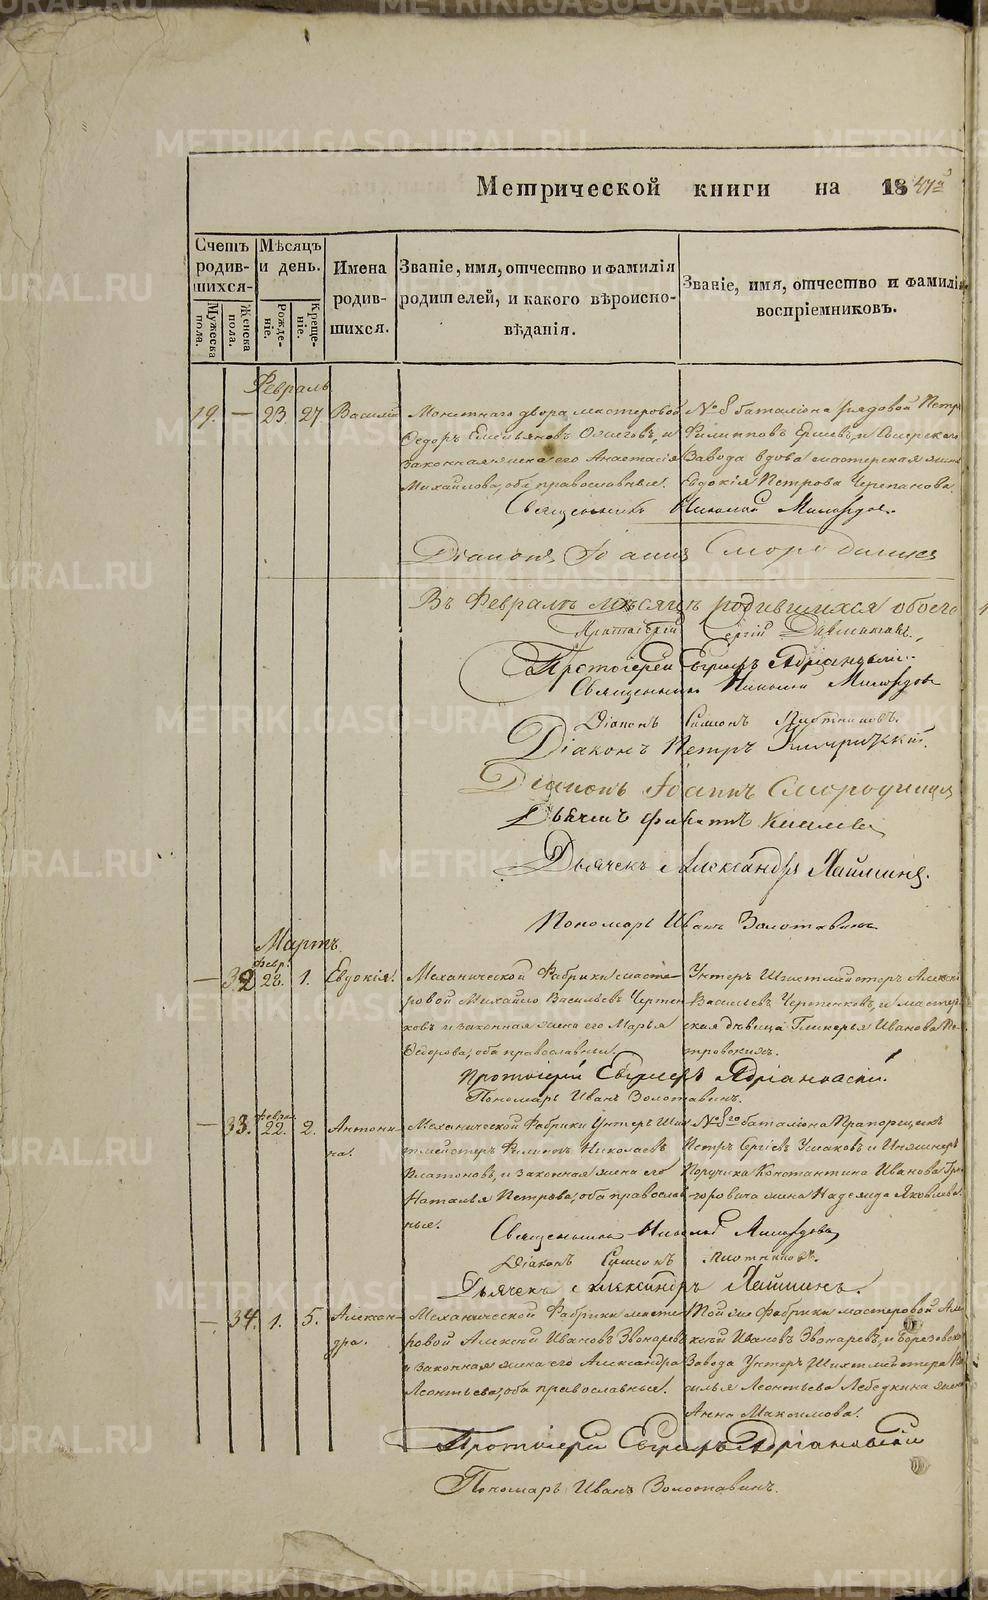 Метрической книги на 1847й
Счетъ родив-шихся.
Мѣсяцъ и день.
Имена родив-шихся.
Званіе, имя, отчество и фамилія родителей, и какого вѣроиспо-вѣданія.
Званіе, имя, отчество и фамилія воспріемниковъ.
Мужеска пола.
Женска пола.
Рожде-ніе.
Креще-ніе.
Февраль
19. — 23. 27. Василій
Монетнаго двора мастеровой
Ѳедоръ Емельяновъ и
законная жена его Анастасія
Михайлова, оба православные.
№ 8 баталіона рядовой Петръ
Филипповъ
Завода вдова мастерская жена
Евдокія Петрова Черепанова.
Священникъ Николай
Діаконъ Іоаннъ Смородинцевъ
Въ Февралѣ мѣсяцѣ родившихся обоего
Сергій
Протоіерей Евграфъ Адріановскій
Священникъ Николай
Діаконъ Симеонъ Плотниковъ.
Діаконъ Петръ
Діаконъ Іоаннъ Смородинцевъ
Дьячекъ
Дьячекъ Александръ Ляпцинъ.
Пономарь Иванъ Золотавинъ.
Мартъ.
— 32 Февр. 28. 1. Евдокія.
Механической Фабрики масте-
ровой Михайло Васильевъ Чертен-
ковъ и законная жена его Марья
Ѳедорова, оба православные.
Унтеръ Шихтмейстеръ
Васильевъ Чертенковъ, и мастер-
ская дѣвица Гликерья Иванова Пе-
тровскихъ.
Протоіерей Евграфъ Адріановскій.
Пономарь Иванъ Золотавинъ.
— 33. Февра. 22. 2. Антони-
на.
Механической Фабрики Унтеръ Ших-
тмейстеръ Филипъ Николаевъ
Платоновъ, и законная жена его
Наталья Петрова, оба православ-
ные.
№ 8го баталіона Прапорщикъ
Петръ Сергіевъ Ушаковъ и Инженеръ
Поручика Константина Иванова Гри-
горовича жена Надежда Яковлева.
Священникъ Николай
Діаконъ Симеонъ Плотниковъ.
Дьячекъ Александръ Ляпцинъ.
— 34. 1. 5. Алексан-
дра.
Механической Фабрики масте-
ровой Алексій Ивановъ Звонаревъ
и законная жена его Александра
Леонтьева, оба православные.
Той же Фабрики мастеровой Але-
ксій Ивановъ Звонаревъ, и Березовскаго
Завода Унтеръ Шихтмейстера Ва-
силья Леонтьева Лебедкина жена
Анна Максимова.
Протоіерей Евграфъ Адріановскій
Пономарь Иванъ Золотавинъ.
METRIKI.GASO-URAL.RU